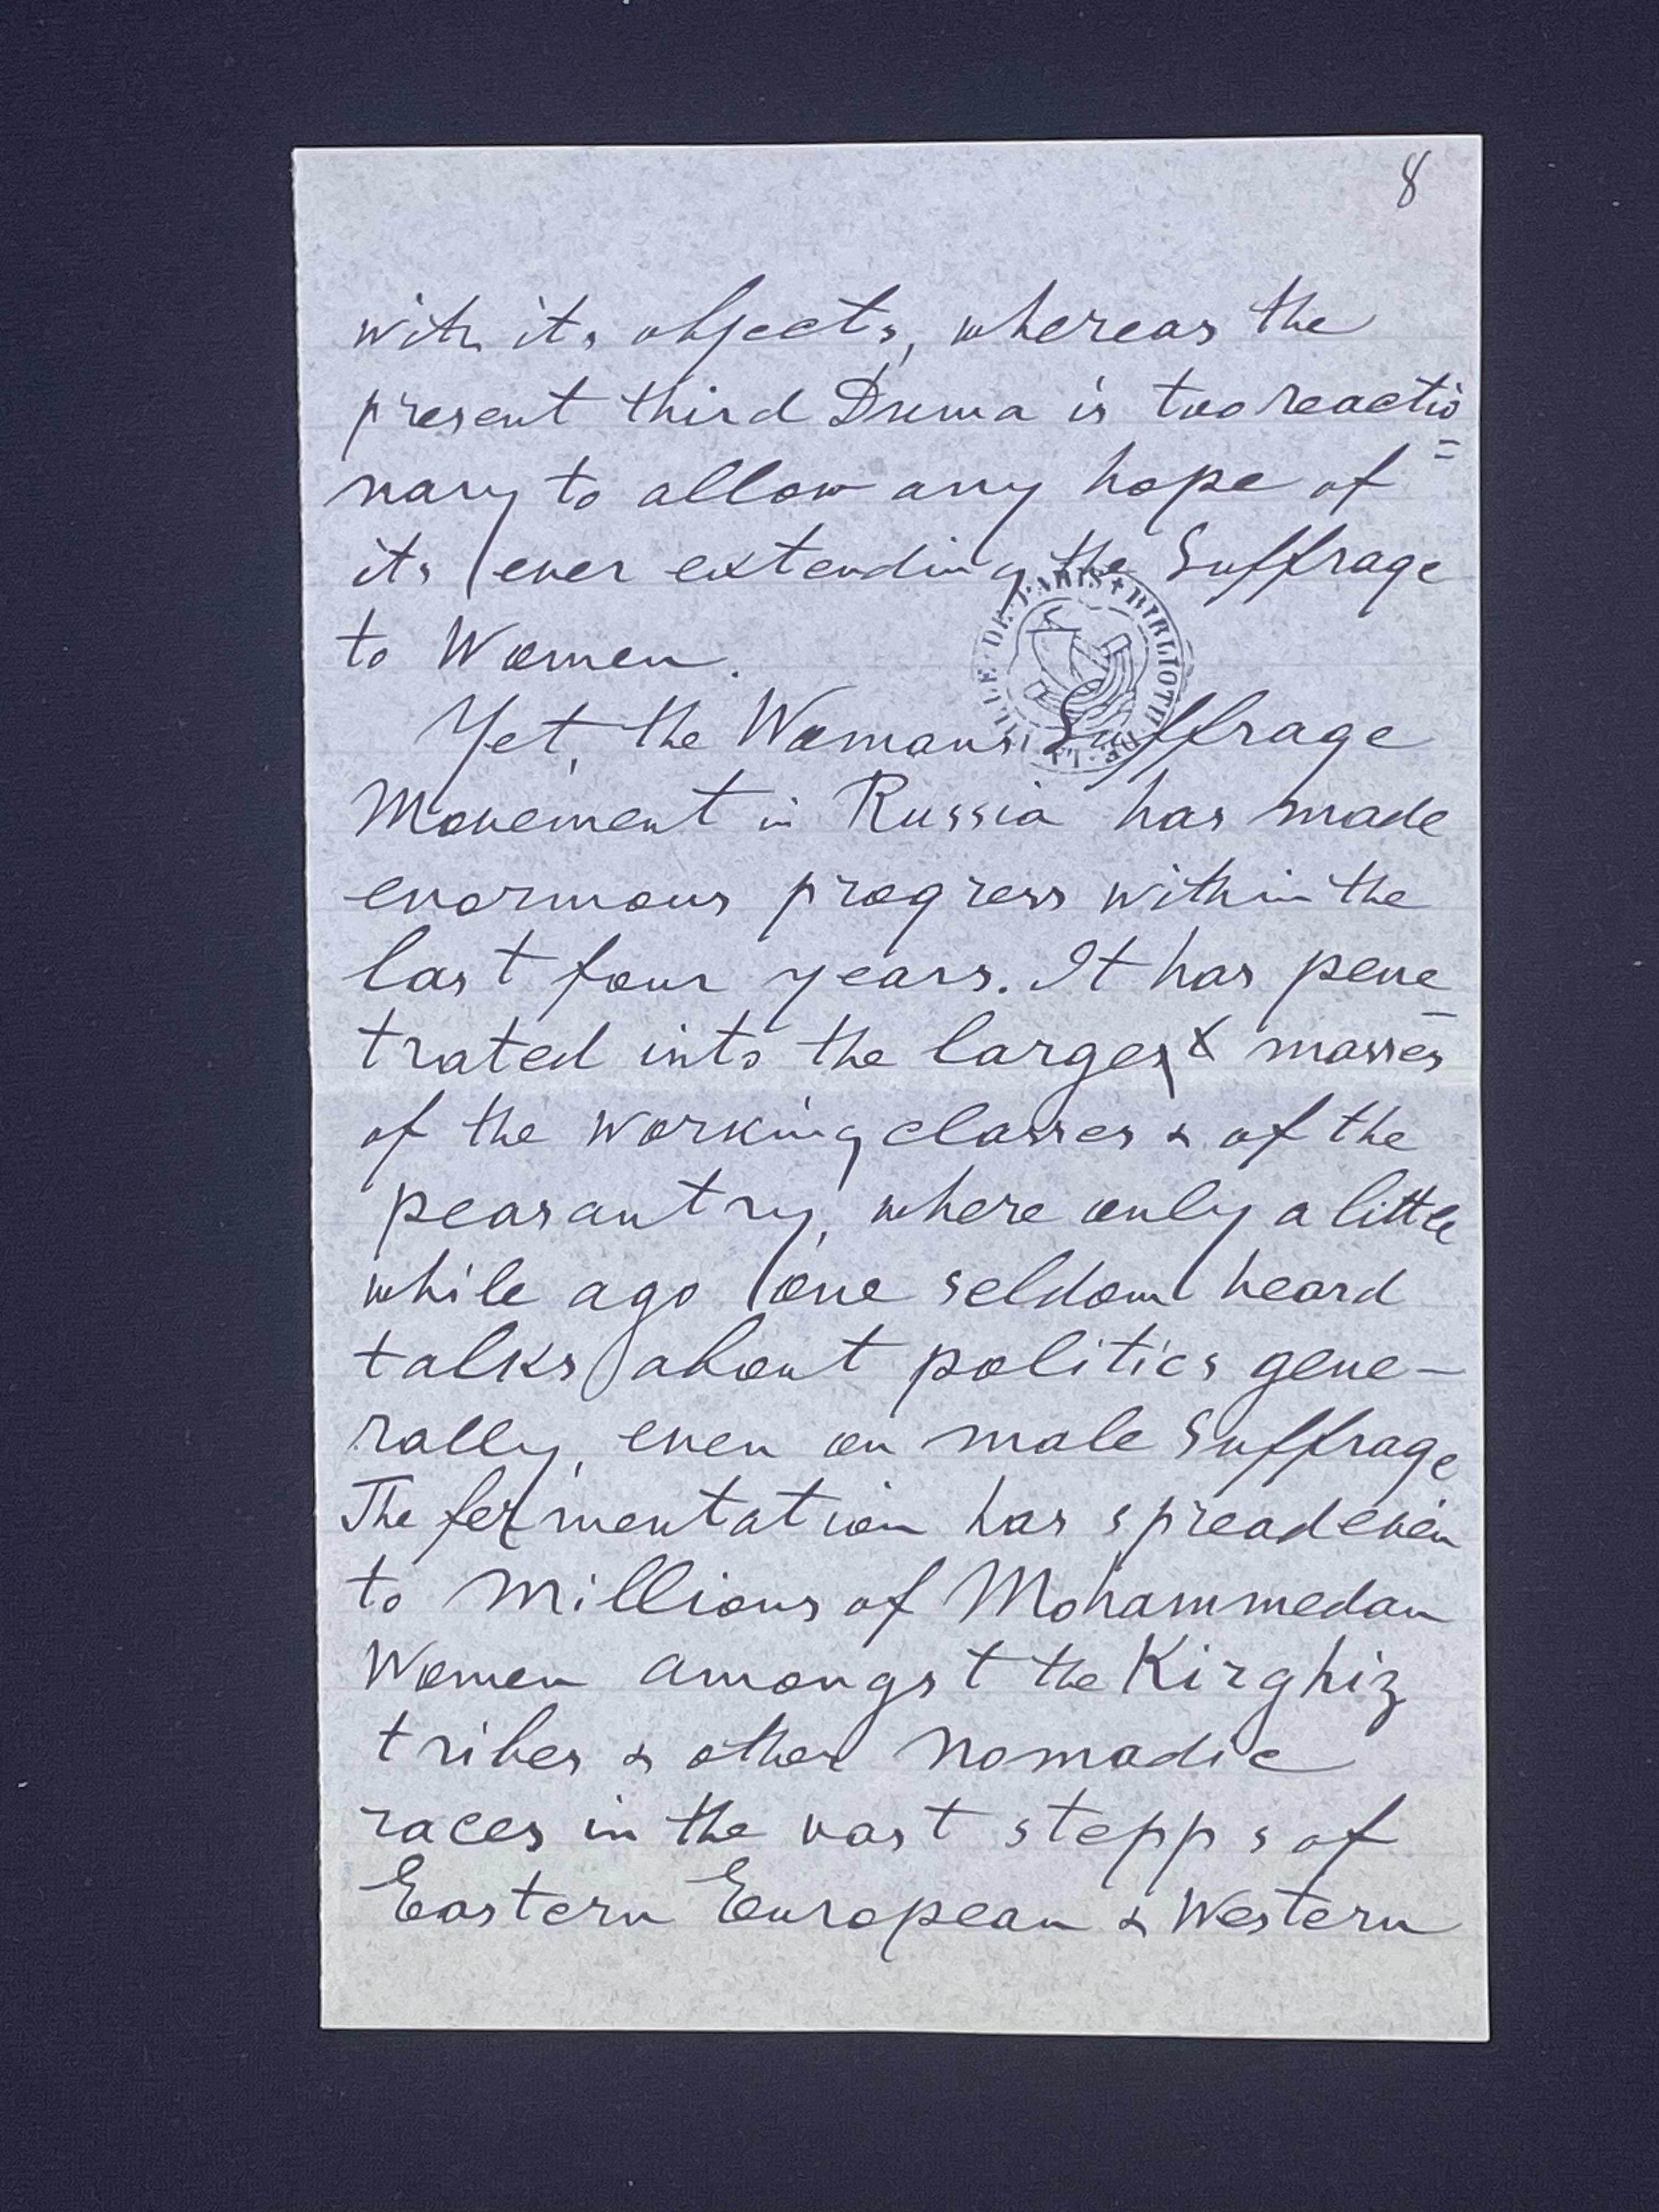 8
with its objects, whereas the
present third Duma is too reactio=
nary to allow any hope of
its ever extending the Suffrage
to Women.
VILLE DE PARIS + BIBLIOTH
Yet, the Womans Suffrage
Movement in Russia has made
enormous progress within the
last four years. It has pene-
trated into the larges masses
of the working classes & of the
peasantry, where only a little
while ago one seldom heard
talks about politics gene-
rally, even on male Suffrage
The fermentation has spread even
to Millions of Mohammedan
Women amongst the Kirghiz
tribes & other nomadic
races in the vast stepps of
Eastern European & Western